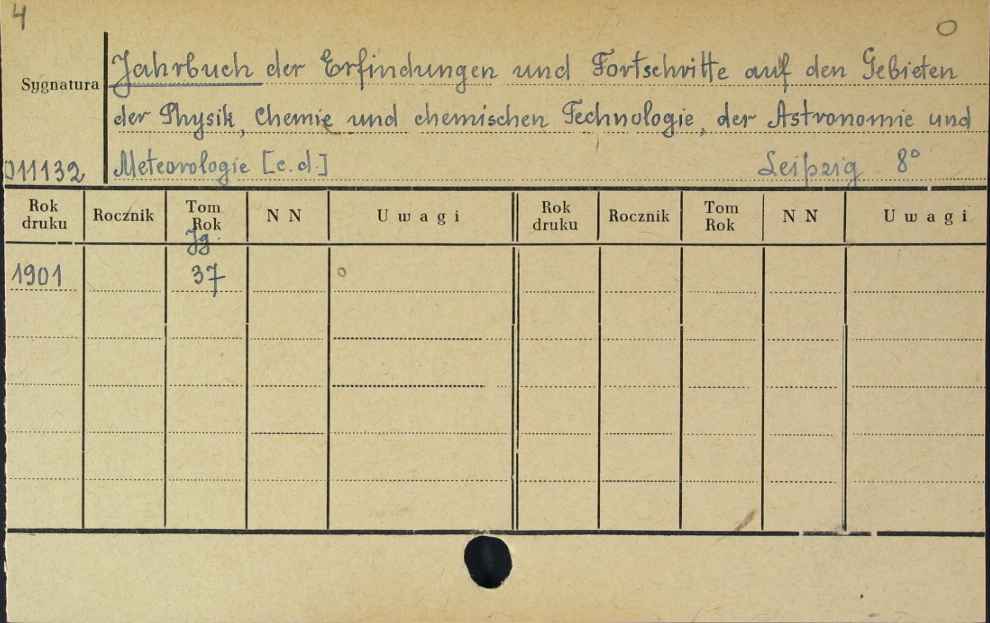 4
O
Sygnatura
Jahrbuch der Erfindungen und Fortschritte auf den Gebieten
der Physik, Chemie und chemischen Technologie, der Astronomie und
011132 Meteorologie [c.d.] Leipzig 8°
Rok druku Rocznik Tom Rok N N Uwagi Rok druku Rocznik Tom Rok N N Uwagi
Jg.
1901 37 o